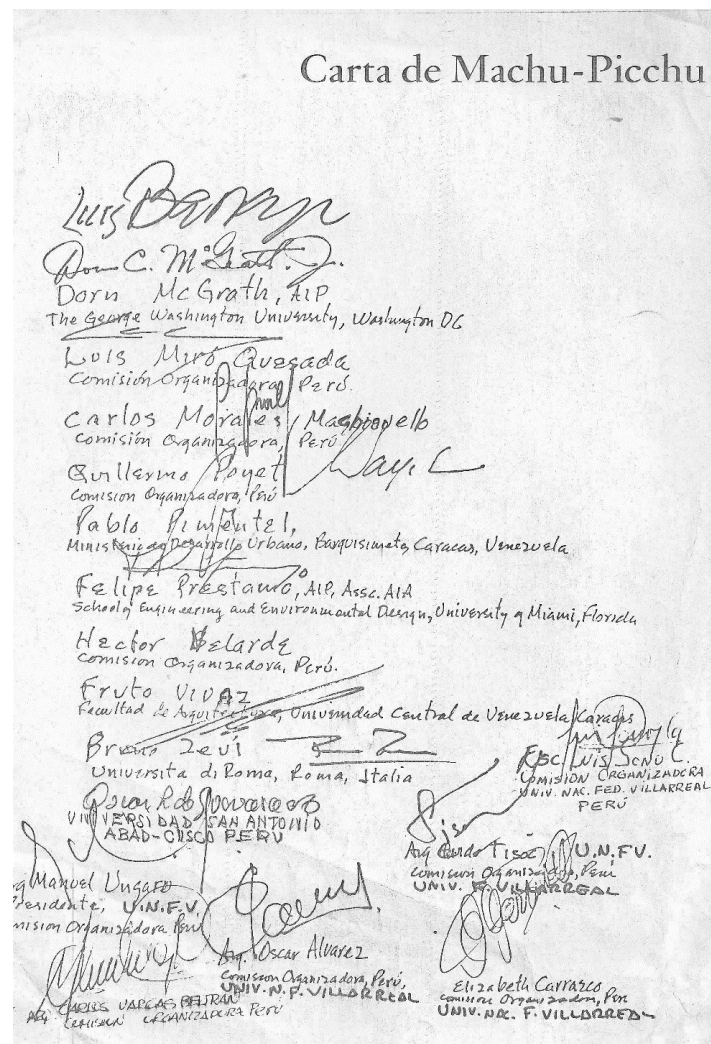 Carta de Machu-Picchu
Luis
Dorn C. McGrath, Jr.
Dorn McGrath, AIP
The George Washington University, Washington DC
Luis Miró Quesada
Comisión Organizadora, Perú.
Carlos Morales Machiavello
Comisión Organizadora, Perú
Guillermo Payet
Comision Organizadora, Perú
Pablo Pimentel,
Ministerio de Desarrollo Urbano, Barquisimeto, Caracas, Venezuela
Felipe Préstamo, AIP, Assc. AIA
School of Engineering and Environmental Design, University of Miami, Florida
Hector Velarde
Comision Organizadora, Perú.
Fruto Vivaz
Facultad de Arquitectura, Universidad Central de Venezuela, Caracas
Bruno Zevi
Universita di Roma, Roma, Italia
Esc Luis
COMISION ORGANIZADORA
UNIV. NAC. FED. VILLARREAL
PERÚ
UNIVERSIDAD SAN ANTONIO
ABAD-CUSCO PERU
Arq Guido Tisoc U.N.F.V.
Comision Organizadora, Perú
UNIV. F. VILLARREAL
Manuel Ungaro
Presidente, U.N.F.V.
mision Organizadora Perú
Arq. Oscar Alvarez
Comision Organizadora, Perú,
UNIV. N. F. VILLARREAL
Elizabeth Carrasco
Comision Organizadora, Perú
UNIV. NAC. F. VILLARREAL
ARQ CARLOS VARGAS BELTRAN
COMISION ORGANIZADORA PERÚ